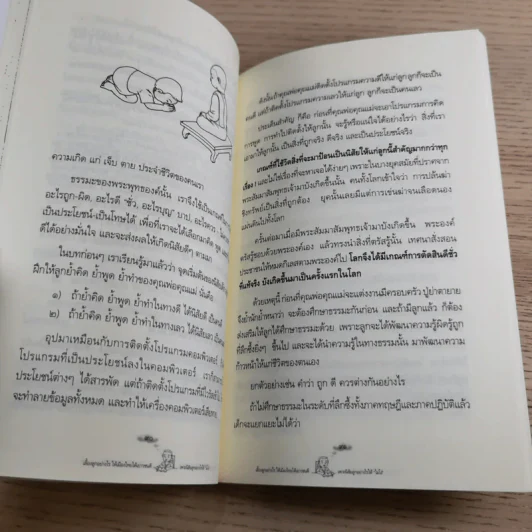 ความเกิด แก่ เจ็บ ตาย ประจำชีวิตของคนเรา
ธรรมะของพระพุทธองค์นั้น เราจึงใช้เป็น
อะไรถูก-ผิด, อะไรดี "ชั่ว, อะไรบุญ" บาป, อะไรควร,
เป็นประโยชน์-เป็นโทษได้ เพื่อที่เราจะได้เลือก
ดีได้อย่างมั่นใจ และจะส่งผลให้เกิดนิสัยดีๆ ตามมา
ในบทก่อนๆ เราเรียนรู้มาแล้วว่า จุดเริ่มต้นของ
ฝึกให้ลูกย้ำคิด ย้ำพูด ย้ำทำของคุณพ่อคุณแม่ นั่นคือ
๑) ถ้าย้ำคิด ย้ำพูด ย้ำทำในทางดี ได้นิสัยดี เป็นคนดี
๒) ถ้าย้ำคิด ย้ำพูด ย้ำทำในทางเลว ได้นิสัยเลว
อุปมาเหมือนกับการติดตั้งโปรแกรมคอมพิวเตอร์
โปรแกรมที่เป็นประโยชน์ลงในคอมพิวเตอร์
ประโยชน์ต่างๆ ได้สารพัด แต่ถ้าติดตั้งโปรแกรมที่มีไวรัส
จะทำลายข้อมูลทั้งหมด และทำให้เครื่องคอมพิวเตอร์
ดังนั้นถ้าคุณพ่อคุณแม่ติดตั้งโปรแกรมความดีให้แก่ลูก ลูกก็จะเป็น
คนดี แต่ถ้าติดตั้งโปรแกรมความเลวให้แก่ลูก ลูกก็จะเป็นคนเลว
ประเด็นสำคัญ ก็คือ ก่อนที่คุณพ่อคุณแม่จะเอาโปรแกรมการคิด
การพูด การทำไปติดตั้งให้ลูกนั้น จะรู้หรือแน่ใจได้อย่างไรว่า สิ่งที่เรา
เอาให้ลูกนั้น เป็นสิ่งที่ถูกจริง ดีจริง และเป็นประโยชน์จริง
เกณฑ์ที่ใช้วัดสิ่งที่จะมาป้อนเป็นนิสัยให้แก่ลูกนี้สำคัญมากกว่าทุก
เรื่อง และไม่ใช่เรื่องที่จะหาเจอได้ง่ายๆ เพราะในบางยุคสมัยที่ปราศจาก
พระสัมมาสัมพุทธเจ้ามาบังเกิดขึ้นนั้น คนทั้งโลกเข้าใจว่า การปล้นฆ่า
ชิงทรัพย์เป็นสิ่งที่ถูกต้อง ยุคนั้นเลยมีแต่การเข่นฆ่าจนเลือดนอง
แผ่นดินไปทั้งโลก
ครั้นต่อมาเมื่อมีพระสัมมาสัมพุทธเจ้ามาบังเกิดขึ้น พระองค์
ตรัสรู้ชอบด้วยพระองค์เอง แล้วทรงนำสิ่งที่ตรัสรู้นั้น เทศนาสั่งสอน
ประชาชนให้หมดกิเลสตามพระองค์ไป โลกจึงได้มีเกณฑ์การตัดสินดีชั่ว
ที่แท้จริง บังเกิดขึ้นมาเป็นครั้งแรกในโลก
ด้วยเหตุนี้ ก่อนที่คุณพ่อคุณแม่จะแต่งงานมีครอบครัว ปู่ย่าตายาย
จึงย้ำนักย้ำหนาว่า จะต้องศึกษาธรรมะกันก่อน และถ้ามีลูกแล้ว ก็ต้อง
ส่งเสริมให้ลูกได้ศึกษาธรรมะด้วย เพราะลูกจะได้พัฒนาความรู้ผิดรู้ถูก
ที่ลึกซึ้งยิ่งๆ ขึ้นไป และจะได้นำความรู้ในทางธรรมนั้น มาพัฒนาความ
ก้าวหน้าให้แก่ชีวิตของตนเอง
ยกตัวอย่างเช่น คำว่า ถูก ดี ควรต่างกันอย่างไร
ถ้าไม่ศึกษาธรรมะในระดับที่ลึกซึ้งทั้งภาคทฤษฎีและภาคปฏิบัติแล้ว
เด็กจะแยกแยะไม่ได้ว่า